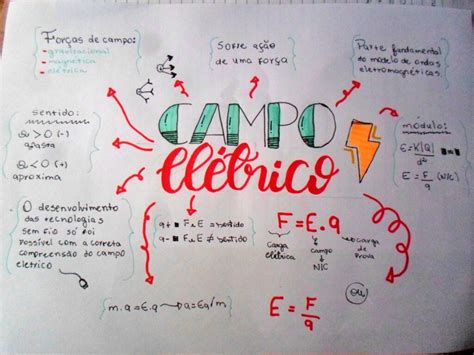 Forças de campo:
- gravitacional
- magnética
- elétrica
Sofre ação
de uma força
Parte fundamental
do modelo de ondas
eletromagnéticas.
CAMPO
elétrico
sentido:
Q > 0 (+)
afasta
Q < 0 (-)
aproxima
módulo:
E = K|Q|
d²
E = F (N/C)
q
O desenvolvimento
das tecnologias
sem fio só foi
possível com a correta
compreensão do campo
elétrico
q + F e E = sentido
q - F e E ≠ sentido
F = E.q
carga
elétrica
campo
N/C
carga de
prova
m.a = E.q → a = Eq/m
E = F
q
ou